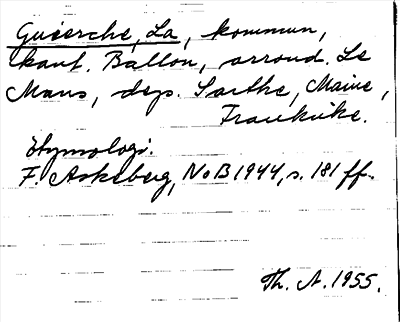 Guéerche, La, kommun,
kant. Ballon, arrond. Le
Mans, dep. Sarthe, Maine,
Frankrike.
Etymologi.
F. Askeberg, NoB 1944, s. 181 ff.
Th. A. 1955.